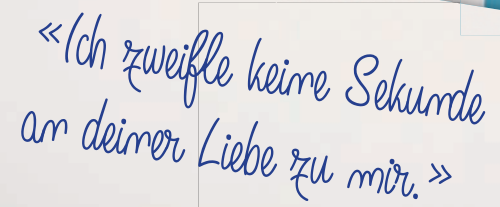 «Ich zweifle keine Sekunde
an deiner Liebe zu mir.»